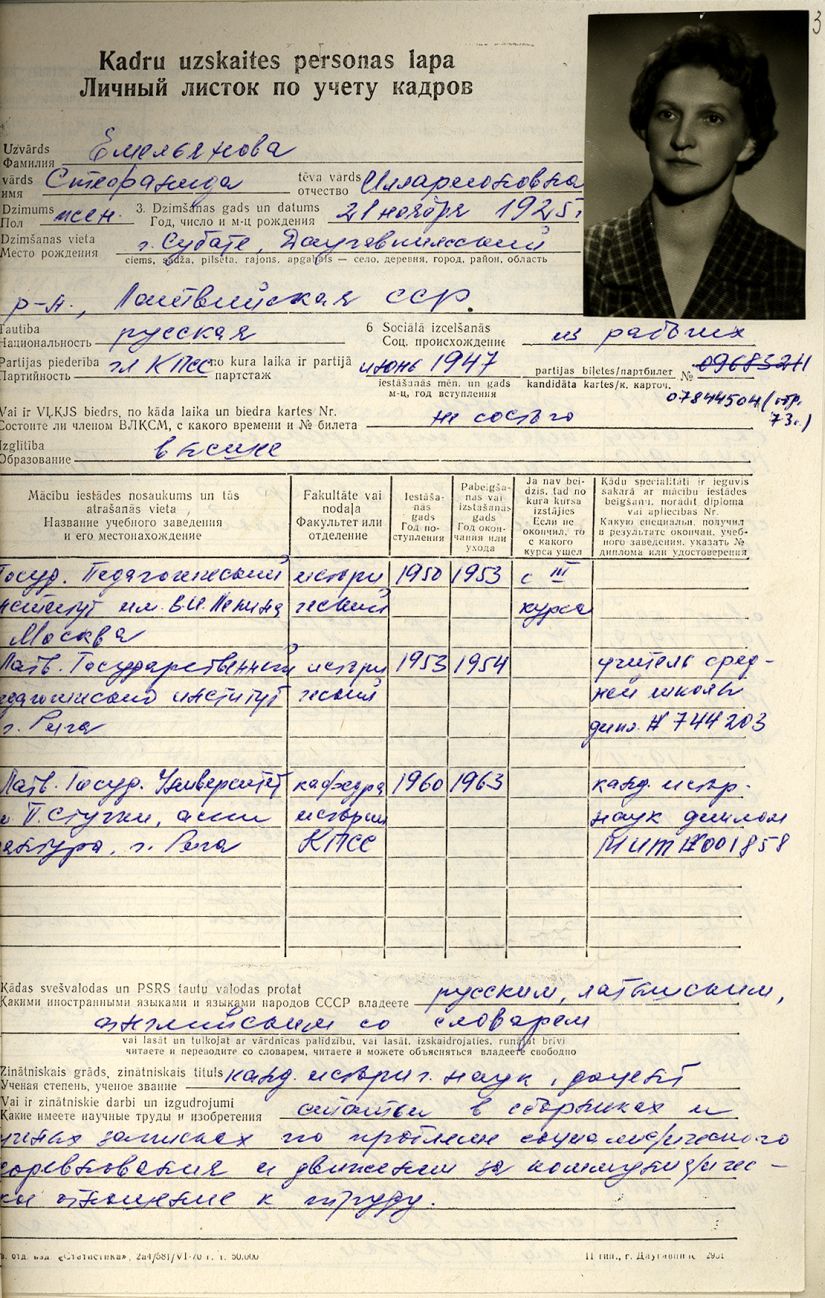 3
Kadru uzskaites personas lapa
Личный листок по учету кадров
Uzvārds
Фамилия Емельянова
vārds tēva vārds
имя Стефанида отчество Илларионовна
Dzimums 3. Dzimšanas gads un datums
Пол жен. Год, число и м-ц рождения 21 ноября 1925 г.
Dzimšanas vieta
Место рождения г. Субате, Даугавпилсский
ciems, sādža, pilsēta, rajons, apgabals — село, деревня, город, район, область
р-н, Латвийская ССР.
Tautība 6 Sociālā izcelšanās
Национальность русская Соц. происхождение из рабочих
Partijas piederība no kura laika ir partijā partijas biļetes/партбилет
Партийность чл КПСС партстаж июнь 1947 № 09683211
iestāšanās mēn. un gads kandidāta kartes/к. карточ.
м-ц, год вступления 07844504 (
73г.)
Vai ir VĻKJS biedrs, no kāda laika un biedra kartes Nr.
Состоите ли членом ВЛКСМ, с какого времени и № билета не состою
Izglītība
Образование высшее
Mācību iestādes nosaukums un tās atrašanās vieta
Название учебного заведения и его местонахождение
Fakultāte vai nodaļa
Факультет или отделение
Iestāšanās gads
Год поступления
Pabeigšanas vai izstāšanās gads
Год окончания или ухода
Ja nav beidzis, tad no kura kursa izstājies
Если не окончил, то с какого курса ушел
Kādu specialitāti ir ieguvis sakarā ar mācību iestādes beigšanu, norādīt diploma vai apliecības Nr.
Какую специальн. получил в результате окончан. учебного заведения, указать № диплома или удостоверения
Госуд. Педагогический истори 1950 1953 с III
институт им. В.И. Ленина ческий курса
Москва
Латв. Государственный истори 1953 1954 учитель сред-
педагогический институт ческий ней школы
г. Рига дипл. № 744203
Латв. Госуд. Университет кафедра 1960 1963 канд. истор.
П. Стучки, аспи истории наук диплом
рантура, г. Рига КПСС МИТ №001858
Kādas svešvalodas un PSRS tautu valodas protat
Какими иностранными языками и языками народов СССР владеете русским, латышским,
английским со словарем
vai lasāt un tulkojat ar vārdnīcas palīdzību, vai lasāt, izskaidrojaties, runājat brīvi
читаете и переводите со словарем, читаете и можете объясняться владеете свободно
Zinātniskais grāds, zinātniskais tituls
Ученая степень, ученое звание канд. историч. наук, доцент
Vai ir zinātniskie darbi un izgudrojumi
Какие имеете научные труды и изобретения статьи в сборниках и
ученых записках по проблеме социалистического
соревнования и движения за коммунистичес-
кое отношение к труду.
отд. изд. «Статистика», 2а4/581/VI-70 г. т. 50.000
II тип., г. Даугавпилс 2931